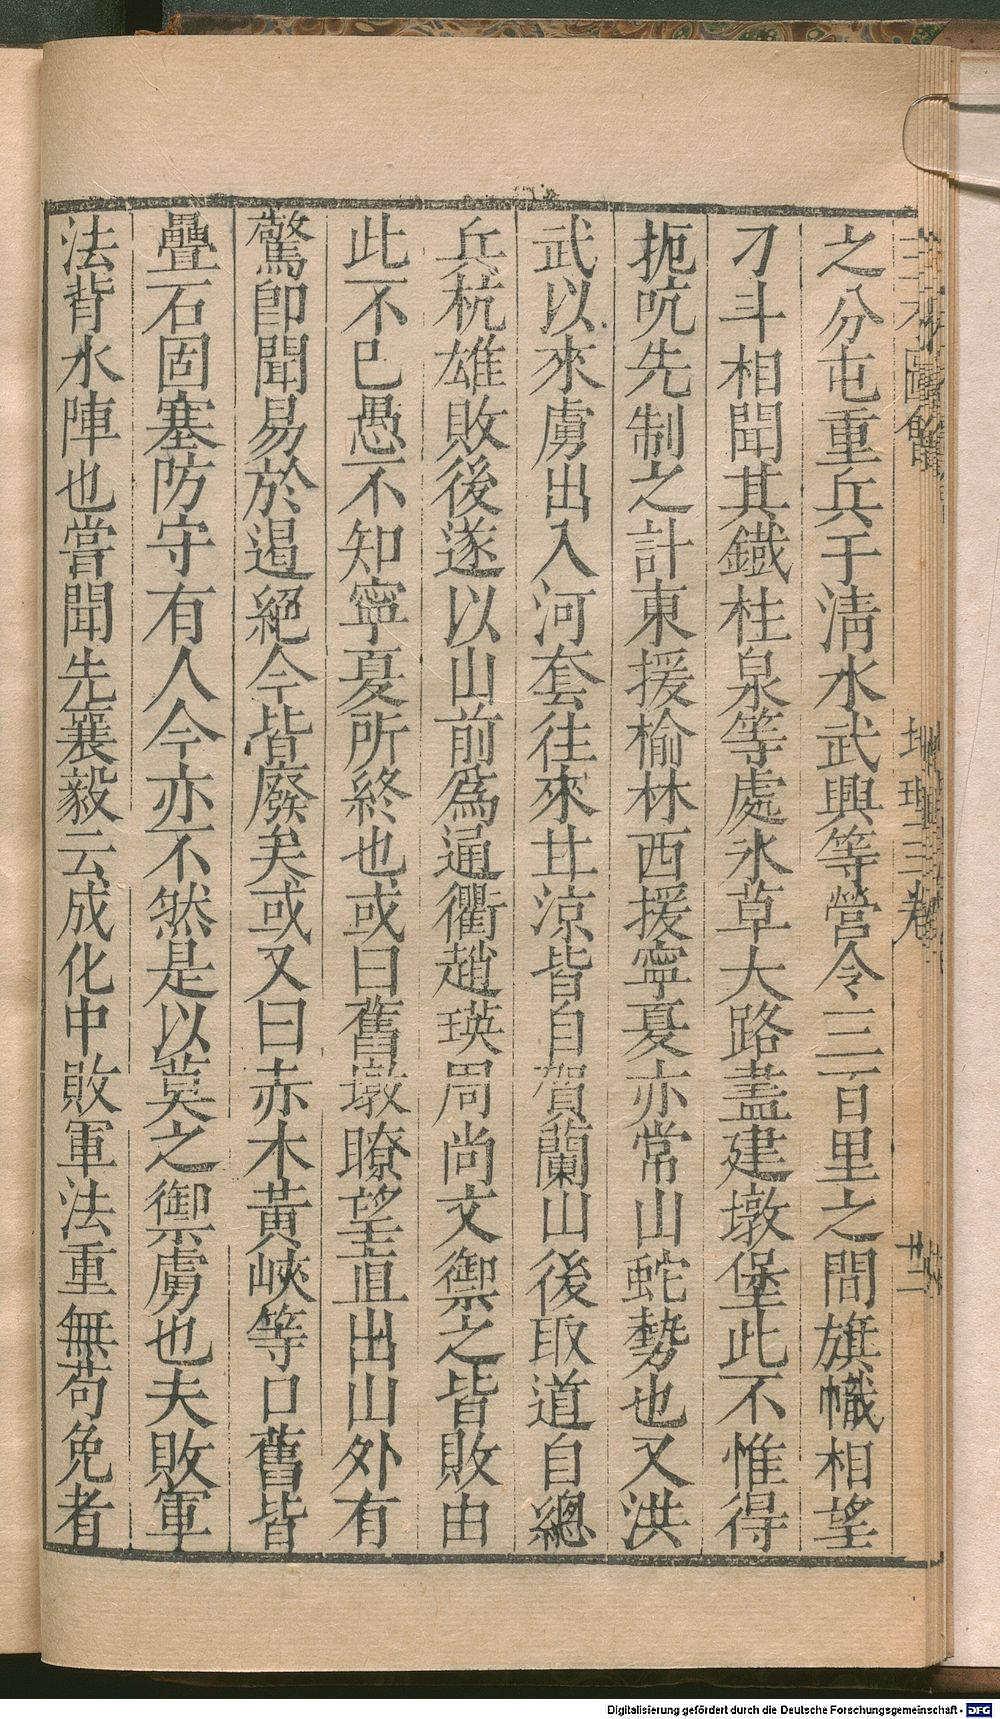 之分屯重兵于清水武興等營令三百里之間旗幟相望
刁斗相聞其鐵柱泉等處水草大路盡建墩堡此不惟得
扼吭先制之計東援榆林西援寧夏亦常山蛇勢也又洪
武以來虜出入河套往來甘涼皆自賀蘭山後取道自總
兵杭雄敗後遂以山前為通衢趙瑛周尚文禦之皆敗由
此不已愚不知寧夏所終也或曰舊墩瞭望直出山外有
驚即聞易於遏絕今皆廢矣或又曰赤木黃峽等口舊皆
疊石固塞防守有人今亦不然是以莫之禦虜也夫敗軍
法背水陣也嘗聞先襄毅云成化中敗軍法重無苟免者
Digitalisierung gefördert durch die Deutsche Forschungsgemeinschaft - DFG